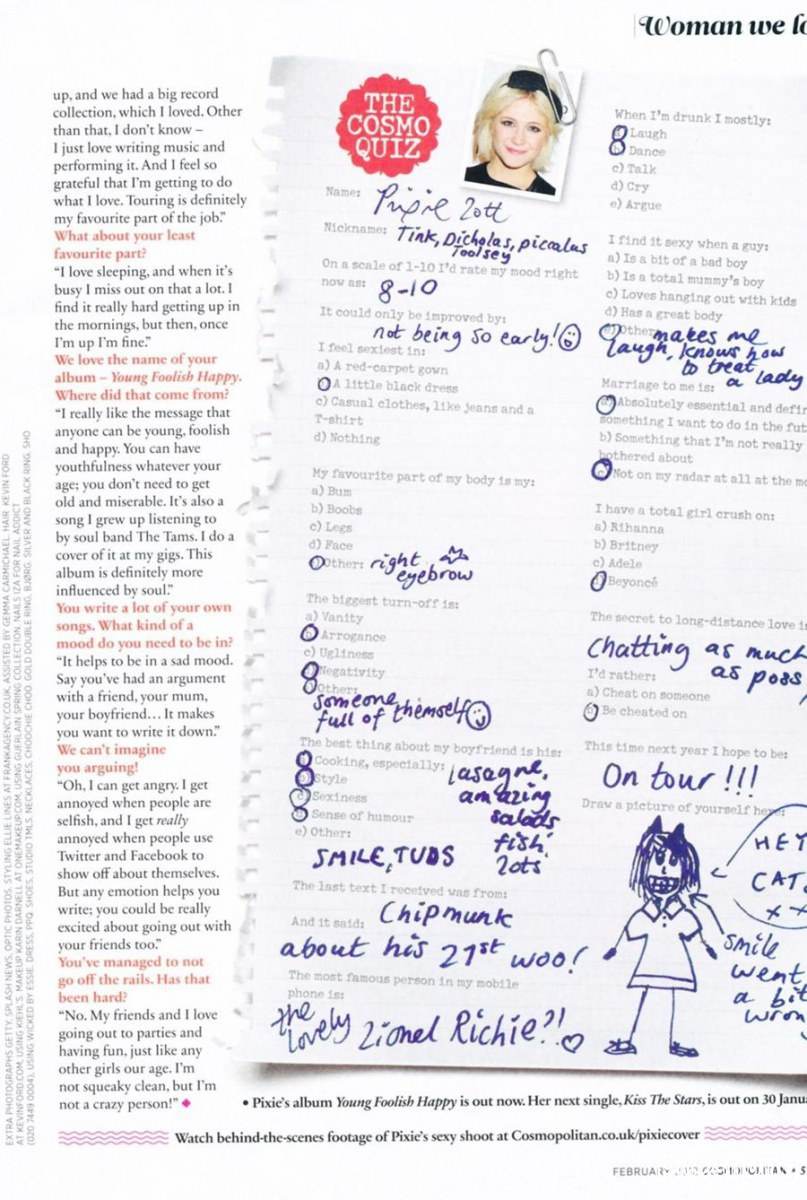 Woman we lo
up, and we had a big record
collection, which I loved. Other
than that, I don't know –
I just love writing music and
performing it. And I feel so
grateful that I'm getting to do
what I love. Touring is definitely
my favourite part of the job."
What about your least
favourite part?
"I love sleeping, and when it's
busy I miss out on that a lot. I
find it really hard getting up in
the mornings, but then, once
I'm up I'm fine."
We love the name of your
album – Young Foolish Happy.
Where did that come from?
"I really like the message that
anyone can be young, foolish
and happy. You can have
youthfulness whatever your
age; you don't need to get
old and miserable. It's also a
song I grew up listening to
by soul band The Tams. I do a
cover of it at my gigs. This
album is definitely more
influenced by soul."
You write a lot of your own
songs. What kind of a
mood do you need to be in?
"It helps to be in a sad mood.
Say you've had an argument
with a friend, your mum,
your boyfriend… It makes
you want to write it down."
We can't imagine
you arguing!
"Oh, I can get angry. I get
annoyed when people are
selfish, and I get really
annoyed when people use
Twitter and Facebook to
show off about themselves.
But any emotion helps you
write; you could be really
excited about going out with
your friends too."
You've managed to not
go off the rails. Has that
been hard?
"No. My friends and I love
going out to parties and
having fun, just like any
other girls our age. I'm
not squeaky clean, but I'm
not a crazy person!"
THE
COSMO
QUIZ
Name: Pixie Lott
Nickname: Tink, Dicholas, piccalus
Toolsey
On a scale of 1-10 I'd rate my mood right
now as: 8-10
It could only be improved by:
not being so early!
I feel sexiest in:
a) A red-carpet gown
b) A little black dress
c) Casual clothes, like jeans and a
T-shirt
d) Nothing
My favourite part of my body is my:
a) Bum
b) Boobs
c) Legs
d) Face
e) Other: right
eyebrow
The biggest turn-off is:
a) Vanity
b) Arrogance
c) Ugliness
d) Negativity
e) Other:
someone
full of themself
The best thing about my boyfriend is his:
a) Cooking, especially: lasagne,
amazing
salads
fish
lots
b) Style
c) Sexiness
d) Sense of humour
e) Other:
SMILE, TUDS
The last text I received was from:
Chipmunk
And it said:
about his 21st woo!
The most famous person in my mobile
phone is:
the lovely Lionel Richie?!
When I'm drunk I mostly:
a) Laugh
b) Dance
c) Talk
d) Cry
e) Argue
I find it sexy when a guy:
a) Is a bit of a bad boy
b) Is a total mummy's boy
c) Loves hanging out with kids
d) Has a great body
e) Other makes me
laugh, knows how
to treat
a lady
Marriage to me is:
a) Absolutely essential and defin
something I want to do in the fut
b) Something that I'm not really
bothered about
c) Not on my radar at all at the mo
I have a total girl crush on:
a) Rihanna
b) Britney
c) Adele
d) Beyoncé
The secret to long-distance love i
Chatting as much
as poss
I'd rather:
a) Cheat on someone
b) Be cheated on
This time next year I hope to be:
On tour!!!
Draw a picture of yourself here:
HEY
CAT
xx
smile
went
a bit
wron
• Pixie's album Young Foolish Happy is out now. Her next single, Kiss The Stars, is out on 30 Janu
Watch behind-the-scenes footage of Pixie's sexy shoot at Cosmopolitan.co.uk/pixiecover
FEBRUARY 2012 COSMOPOLITAN • 5
EXTRA PHOTOGRAPHS GETTY, SPLASH NEWS, OPTIC PHOTOS. STYLING ELLIE LINES AT FRANKAGENCY.CO.UK, ASSISTED BY GEMMA CARMICHAEL. HAIR: KEVIN FORD
AT KEVINFORD.COM, USING KIEHL'S. MAKEUP KARIN DARNELL AT ONEMAKEUP.COM, USING GUERLAIN SPRING COLLECTION. NAILS IZA FOR NAIL ADDICT
(020 7449 0004), USING WICKED BY ESSIE. DRESS, PPQ. SHOES, STUDIO TMLS. NECKLACES, CHOOCHIE CHOO. GOLD DOUBLE RING, BJØRG. SILVER AND BLACK RING, SHO